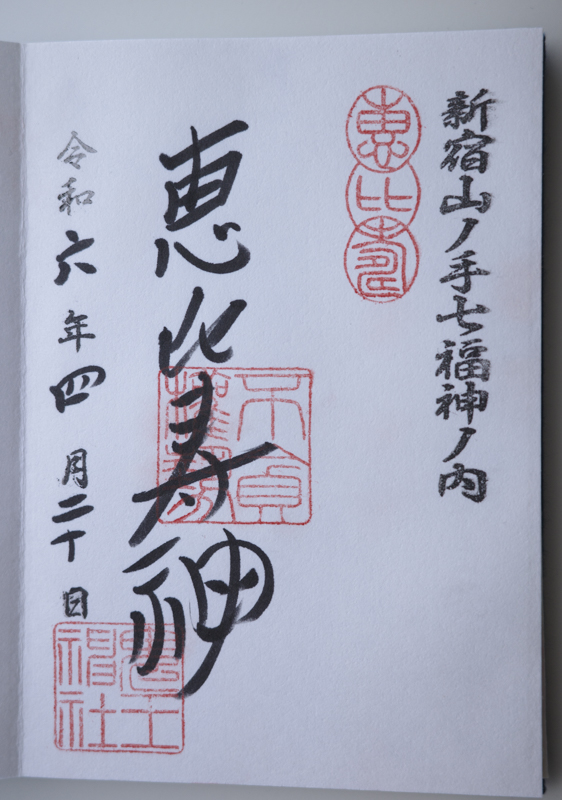 新宿山ノ手七福神ノ内
恵比寿
恵比寿神
令和六年四月二十日